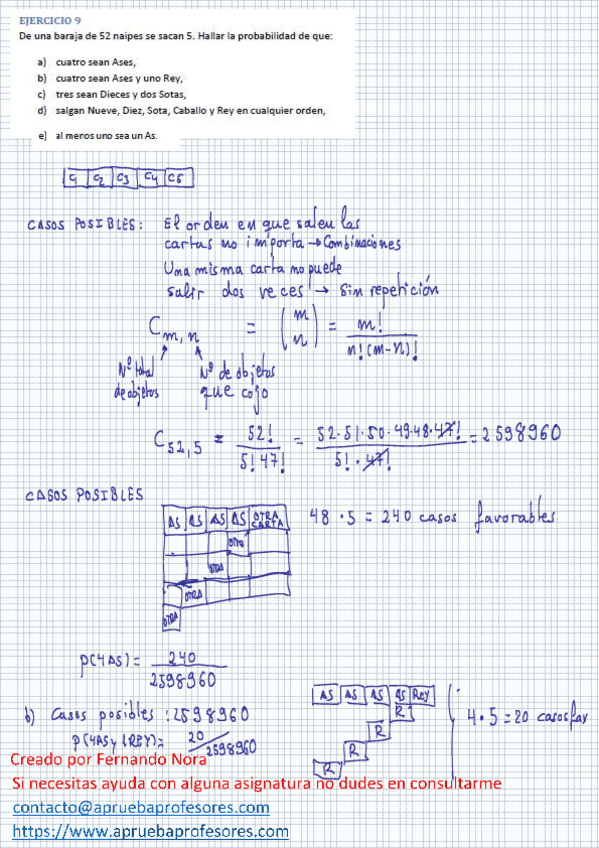 EJERCICIO 9
De una baraja de 52 naipes se sacan 5. Hallar la probabilidad de que:
a) cuatro sean Ases,
b) cuatro sean Ases y uno Rey,
c) tres sean Dieces y dos Sotas,
d) salgan Nueve, Diez, Sota, Caballo y Rey en cualquier orden,
e) al menos uno sea un As.
C1 C2 C3 C4 C5
CASOS POSIBLES: El orden en que salen las
cartas no importa → Combinaciones
Una misma carta no puede
salir dos veces → Sin repetición
C m,n = (m n) = m! / n!(m-n)!
Nº total de objetos
Nº de objetos que cojo
C 52,5 = 52! / 5!47! = 52·51·50·49·48·47! / 5!·47! = 2598960
CASOS POSIBLES
AS AS AS AS OTRA CARTA
OTRA
OTRA
OTRA
OTRA
48·5 = 240 casos favorables
P(4AS) = 240 / 2598960
b) Casos posibles: 2598960
P(4AS y 1REY) = 20 / 2598960
AS AS AS AS Rey
R
R
R
R
4·5 = 20 casos fav
Creado por Fernando Nora
Si necesitas ayuda con alguna asignatura no dudes en consultarme
contacto@apruebaprofesores.com
https://www.apruebaprofesores.com